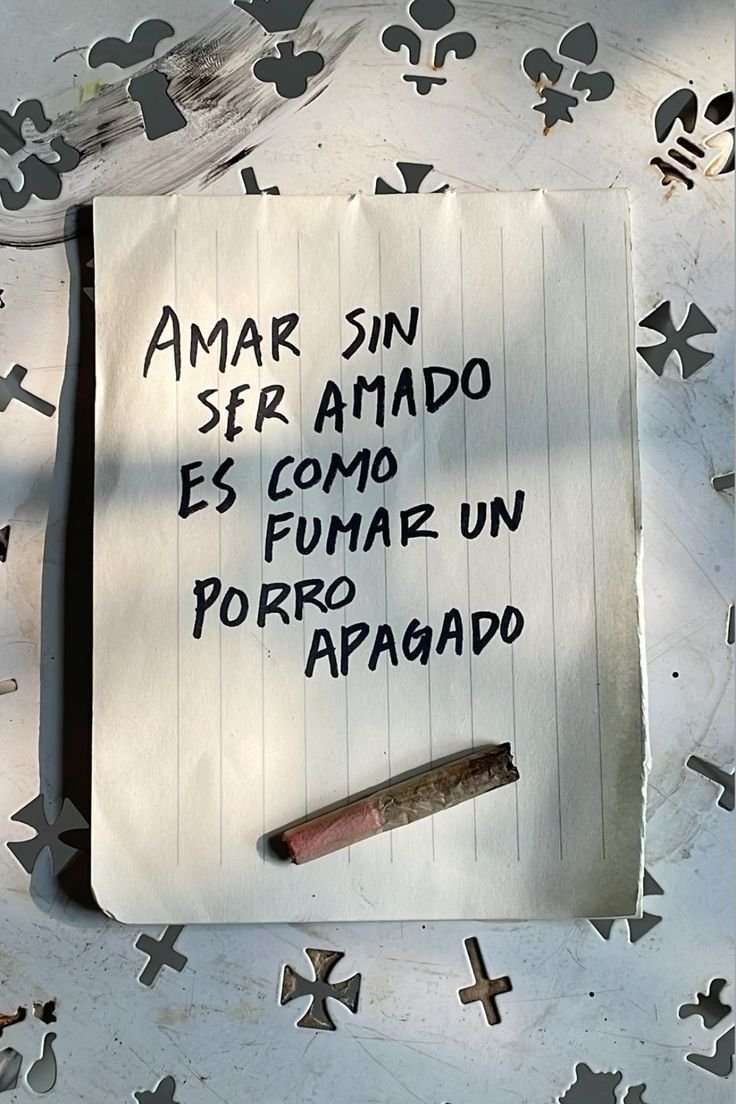 AMAR SIN
SER AMADO
ES COMO
FUMAR UN
PORRO
APAGADO